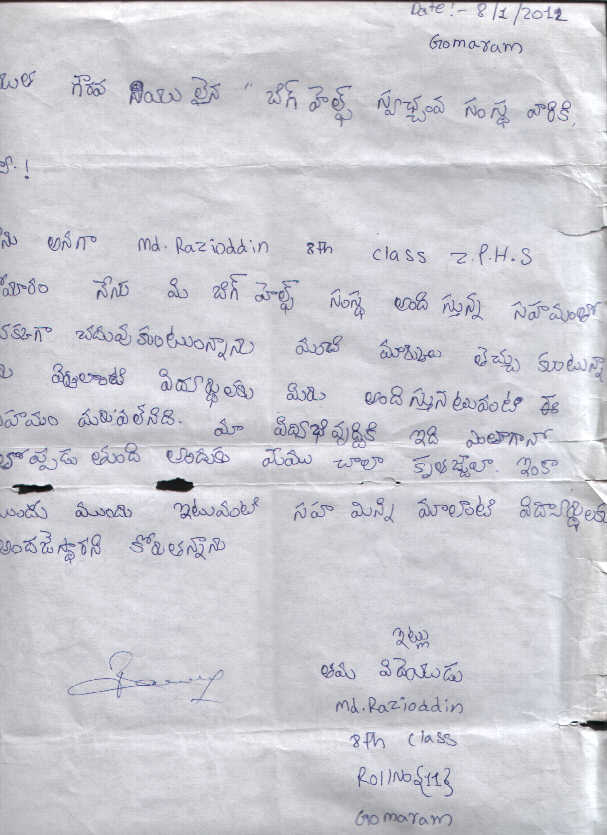 Date:- 8/1/2012
Gomaram
గౌరవ నీయులైన " బిగ్ హెల్ప్ స్వచ్ఛంవ సంస్థ వారికి,
అనగా Md.Razioddin 8th class Z.P.H.S
నేను మి బిగ్ హెల్ప్ సంస్థ అంది స్తున్న సహమంతో
చదువు కుంటుంన్నాను మంచి మార్కులు తెచ్చు కుంటున్నా
విద్యార్థులకు మిరు అంది స్తునటువంటి ఈ
మరువలేనిది. మా ఇది ఎంతగానో
అందుకు మేము చాలా ఇంకా
ముందు ఇటువంటి సహ మిన్ని మాలాంటి విద్యార్థులకు
కోరుతన్నాను
ఇట్లు
తమ విదేయుడు
Md.Razioddin
8th class
RollNo{11}
Gomaram